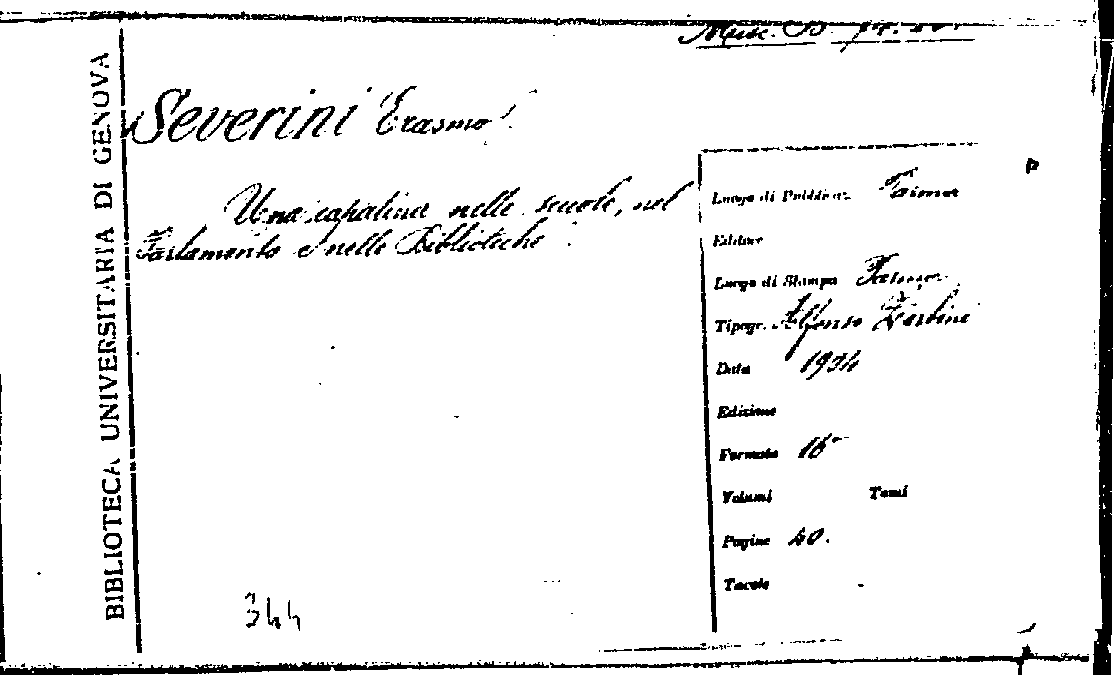 Misc. B.
BIBLIOTECA UNIVERSITARIA DI GENOVA
Severini Erasmo
Una capatina nelle scuole, nel
Parlamento e nelle Biblioteche.
Luogo di Pubblicaz. Parma
Editore
Luogo di Stampa Parma
Tipogr. Alfonso Zerbini
Data 1924
Edizione
Formato 16°
Volumi Tomi
Pagine 40.
Tavole
344